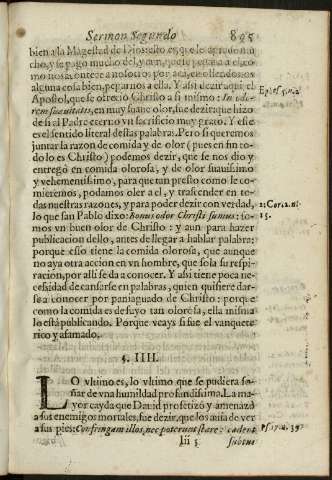 Sermon Segundo 895
bien a la Magestad de Dios: esto es, que le agradó mu-
cho, y se pagó mucho del, y
mo nosacontece a nosotros por acá, en oliendonos
alguna cosa bien, pegarnos a ella. Y asi dezir aqui el
Apostol, que se ofrecio Christo a si mismo: In odo-
Ephes. 5. n. 2
rem suauitatis, en muy suaue olor, fue dezir que hizo
de si al Padre eterno vn sacrificio muy grato. Y este
es el sentido literal destas palabras. Pero si queremos
juntar la razon de comida y de olor (pues en fin to-
do lo es Christo) podemos dezir, que se nos dio y
entregó en comida olorosa, y de olor suauissimo
y vehementissimo, para que tan presto como le co-
mieremos, podamos oler a el, y trascender en to-
das nuestras razones, y para poder dezir con verdad,
lo que san Pablo dixo: Bonus odor Christi sumus: so-
2. Cor. 2. nu.
15.
mos vn buen olor de Christo: y aun para hazer
publicacion dello, antes de llegar a hablar palabra:
porque esso tiene la comida olorosa, que aunque
no aya otra accion en vn hombre, que sola su respi-
racion, por alli se da a conocer. Y asi tiene poca ne-
cessidad de cansarse en palabras, quien quisiere dar-
se a conocer por paniaguado de Christo: porque
como la comida es de suyo tan olorosa, ella misma
lo está publicando. Porque veays si fue el vanquete
rico y afamado.
§. IIII.
LO vltimo es, lo vltimo que se pudiera so-
ñar de vna humildad profundissima. La ma-
yor cayda que Dauid profetizó y amenazó
a sus enemigos mortales, fue dezir, que los auia de ver
a sus pies: Confringam illos, nec poterunt stare: cadent
Ps. 17. n. 39.
Iii 3 subtus